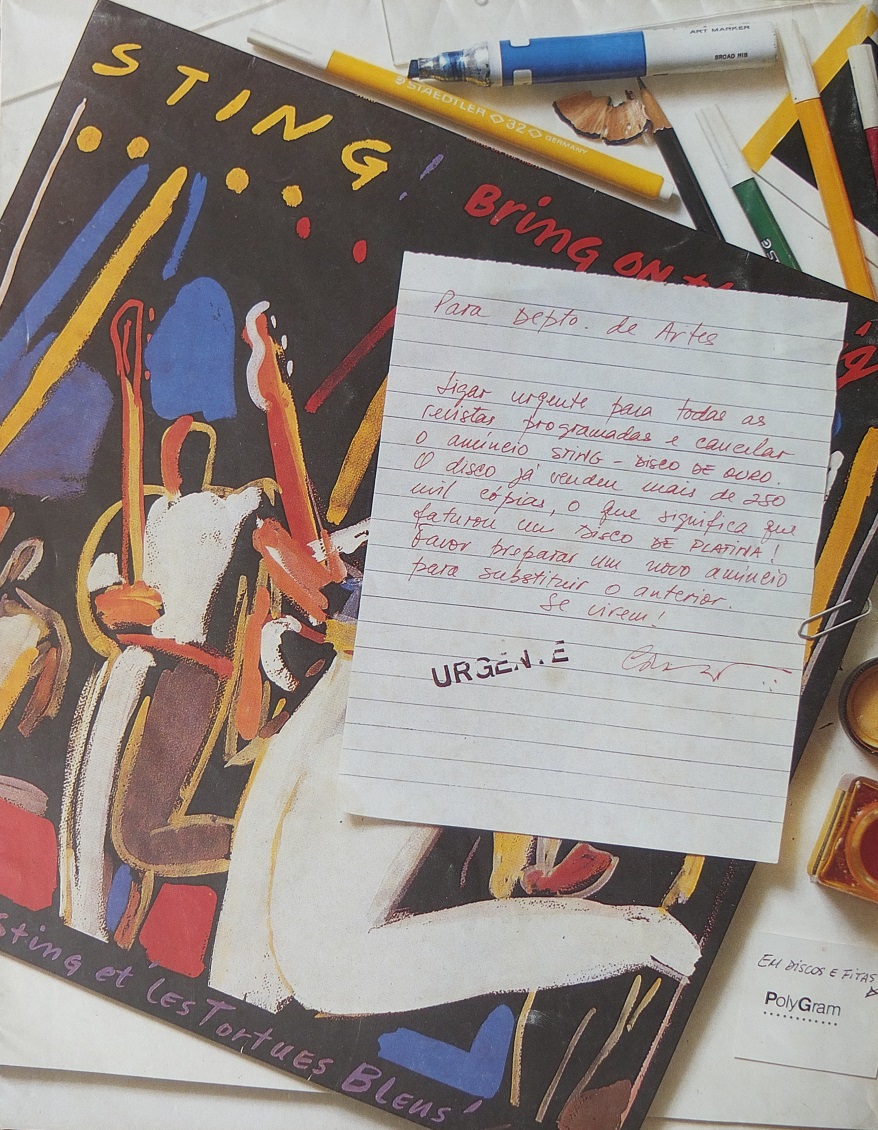 STING!
BRING ON
ART MARKER
BROAD NIB
STAEDTLER 32 GERMANY
Para Depto. de Artes
Ligar urgente para todas as
revistas programadas e cancelar
o anúncio STING - DISCO DE OURO.
O disco já vendeu mais de 250
mil cópias, o que significa que
faturou um DISCO DE PLATINA!
Favor preparar um novo anúncio
para substituir o anterior.
Se virem!
URGENTE
Sting et Les Tortues Bleus!
EM DISCOS E FITAS
PolyGram